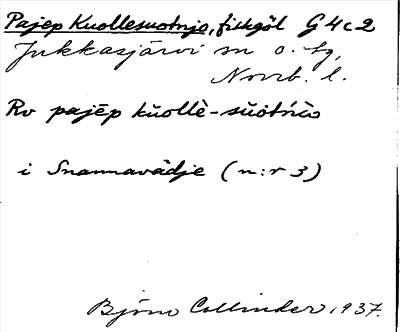 Pajep Kuollesuotnjo, fiskgöl G4c2
Jukkasjärvi sn o. tg,
Norrb. l.
Rv pajēp kŭollè-sŭòtńȯ
i Snannavādje (n:r 3)
Björn Collinder, 1937.